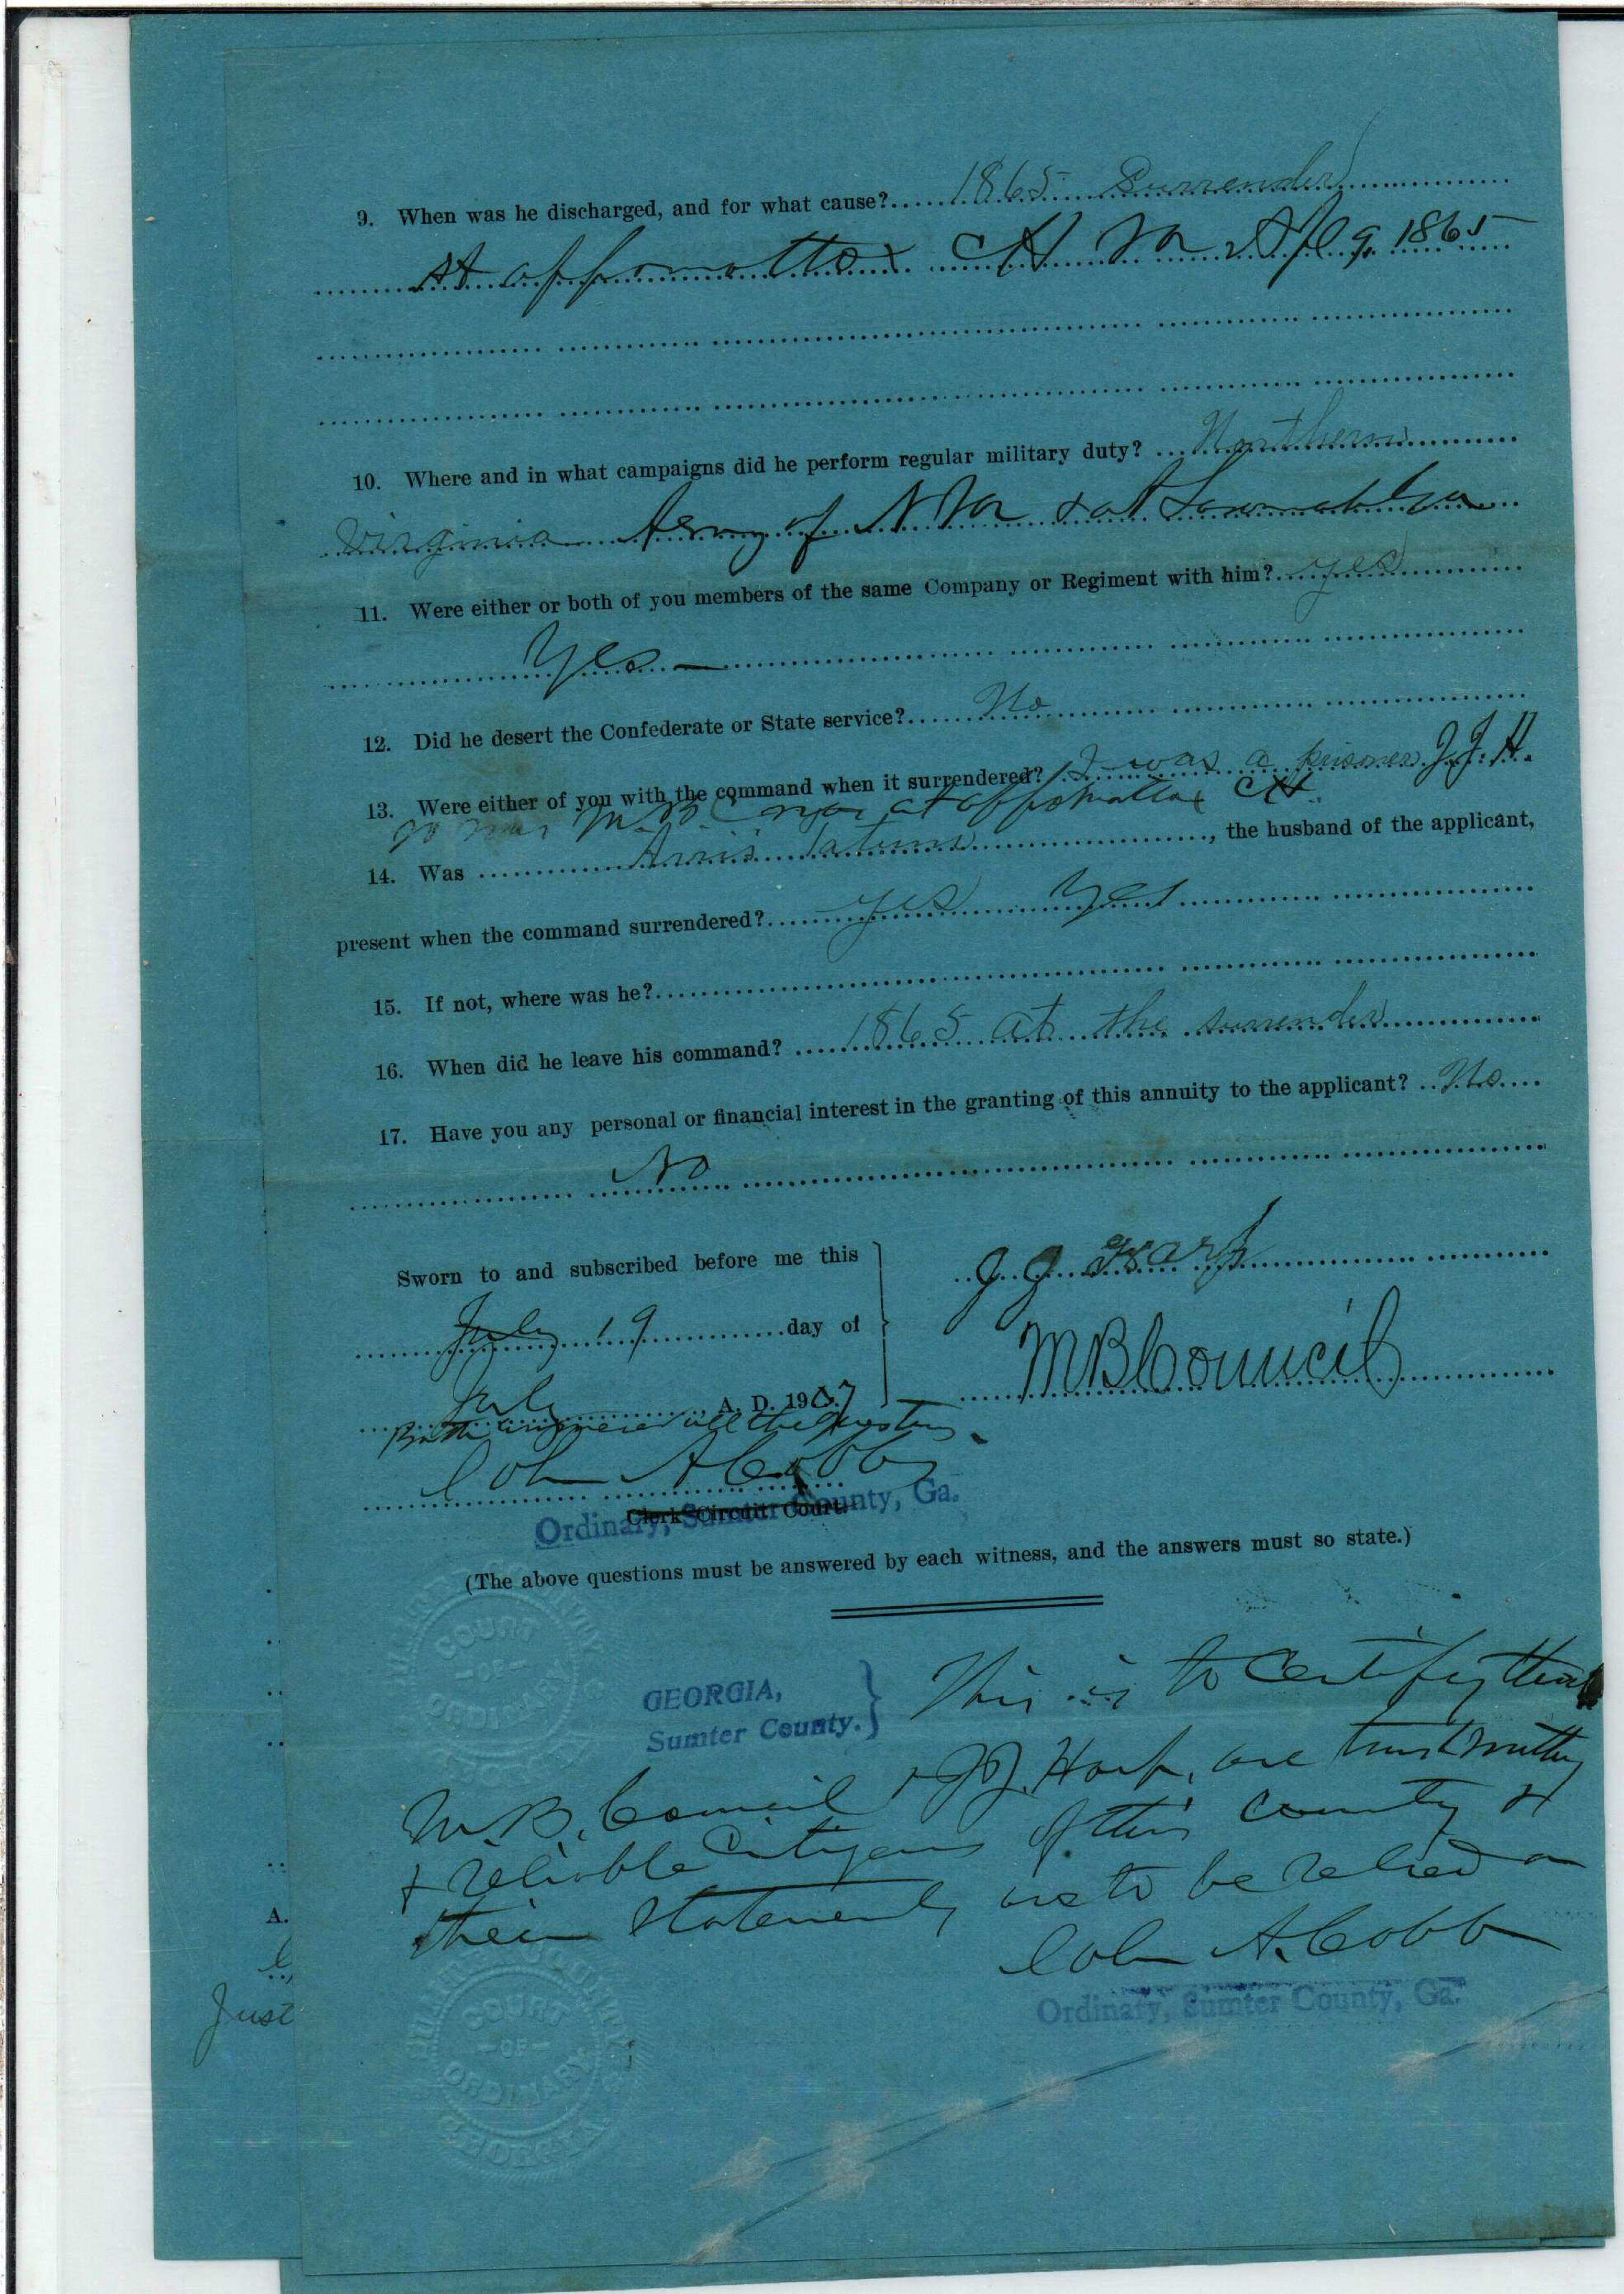 9. When was he discharged, and for what cause? 1865 Surrender
At appomattox CH Va Apl 9. 1865
10. Where and in what campaigns did he perform regular military duty? Northern
Virginia Army of N Va & at Savannah Ga
11. Were either or both of you members of the same Company or Regiment with him? yes
Yes
12. Did he desert the Confederate or State service? No
13. Were either of you with the command when it surrendered? I was a prisoner J. J. H.
M.B.C. was at appomattox CH.
14. Was Arris Tatum, the husband of the applicant,
present when the command surrendered? yes Yes
15. If not, where was he?
16. When did he leave his command? 1865 at the surrender
17. Have you any personal or financial interest in the granting of this annuity to the applicant? No
No
Sworn to and subscribed before me this
July 19 day of
July A. D. 1907
J J Harp
M B Council
Both answered all the questions
John A Cobb
Clerk Circuit Court.
Ordinary, Sumter County, Ga.
(The above questions must be answered by each witness, and the answers must so state.)
COURT
-OF-
ORDINARY
GEORGIA,
Sumter County.
This is to certify that
M. B. Council & J J. Harp, are trustworthy
& reliable Citizens of this county &
their statements are to be relied on
John A. Cobb
Ordinary, Sumter County, Ga.
COURT
-OF-
ORDINARY
GEORGIA
A.
Just